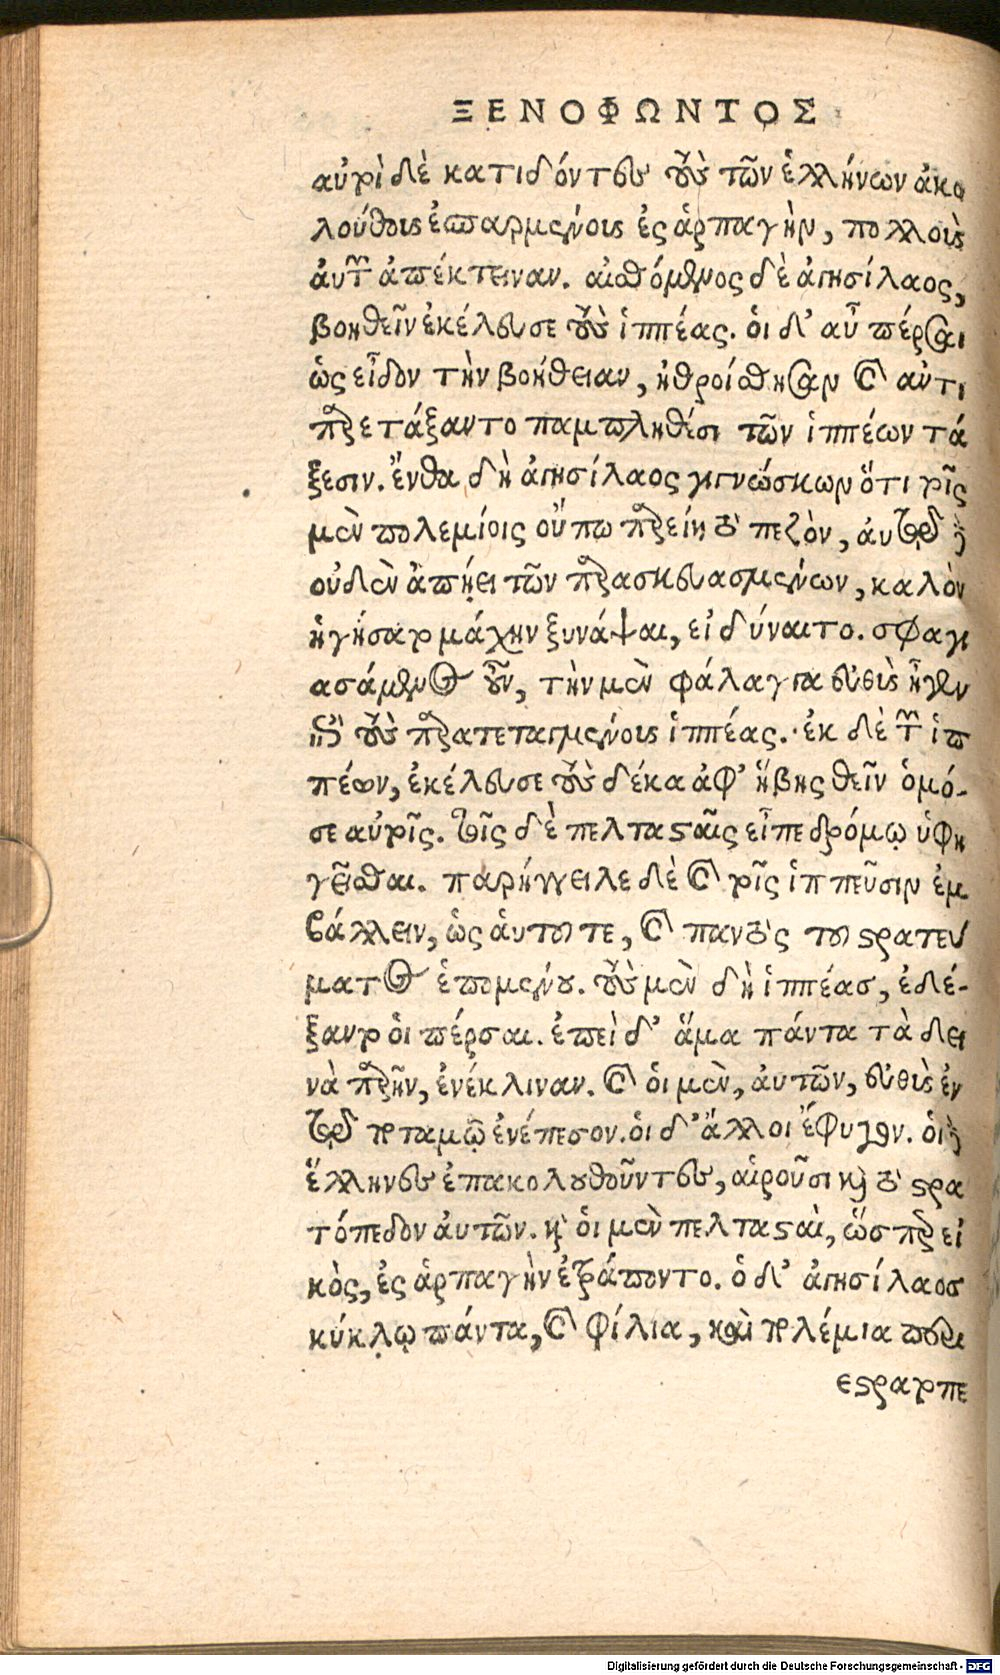 ΞΕΝΟΦΩΝΤΟΣ
αὐτοὶ δὲ κατιδόντες τοὺς τῶν ἑλλήνων ἀκο
λούθους ἐσπαρμένους ἐς ἁρπαγὴν, πολλοὺς
ἀυτῶν ἀπέκτειναν. αἰσθόμενος δὲ ἀγησίλαος,
βοηθεῖν ἐκέλευσε τοὺς ἱππέας. ὁι δ' αὖ πέρσαι
ὡς εἶδον τὴν βοήθειαν, ἠθροίσθησαν καὶ ἀντι
παρετάξαντο παμπληθέσι τῶν ἱππέων τά
ξεσιν. ἔνθα δὴ ἀγησίλαος γιγνώσκων ὅτι τοῖς
μὲν πολεμίοις οὔπω παρείη τὸ πεζὸν, ἀυτῷ δὲ
οὐδὲν ἀπῄει τῶν παρασκευασμένων, καλὸν
ἡγήσατο μάχην ξυνάψαι, εἰ δύναιτο. σφαγι
ασάμενος οὖν, τὴν μὲν φάλαγγα εὐθὺς ἦγεν
ἐπὶ τοὺς παρατεταγμένους ἱππέας. ἐκ δὲ τῶν ἱπ
πέων, ἐκέλευσε τοὺς δέκα ἀφ' ἥβης θεῖν ὁμό-
σε αὐτοῖς. τοῖς δὲ πελταςαῖς εἶπε δρόμῳ ὑφη
γεῖσθαι. παρήγγειλε δὲ καὶ τοῖς ἱππεῦσιν ἐμ
βάλλειν, ὡς ἁυτοῦ τε, καὶ παντὸς τοῦ ςρατεύ
ματος ἑπομένου. τοὺς μὲν δὴ ἱππέας, ἐδέ-
ξαντο ὁι πέρσαι. ἐπεὶ δ' ἅμα πάντα τὰ δει
νὰ παρῆν, ἐνέκλιναν. καὶ ὁι μὲν, ἀυτῶν, εὐθὺς ἐν
τῷ ποταμῷ ἐνέπεσον. ὁι δ' ἄλλοι ἔφυγον. ὁι δὲ
ἕλληνες ἐπακολουθοῦντες, αἱροῦσι καὶ τὸ ςρα
τόπεδον ἀυτῶν. καὶ ὁι μὲν πελταςαὶ, ὥσπερ εἰ
κὸς, ἐς ἁρπαγὴν ἐτράποντο. ὁ δ' ἀγησίλαος
κύκλῳ πάντα, καὶ φίλια, καὶ πολέμια περιε
εςρατοπε
Digitalisierung gefördert durch die Deutsche Forschungsgemeinschaft - DFG